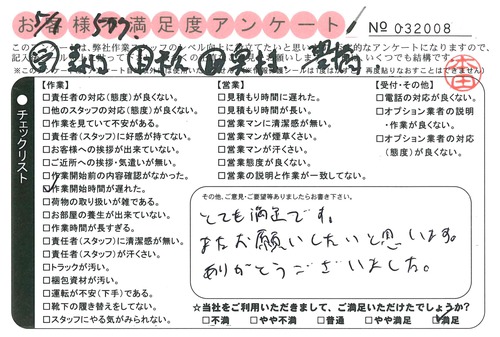 お客様満足度アンケート
№ 032008
このアンケートは、弊社作業スタッフのレベル向上に役立てたいと思い
チェックリスト
【作業】
□責任者の対応(態度)が良くない。
□他のスタッフの対応(態度)が良くない。
□作業を見ていて不安がある。
□責任者(スタッフ)に好感が持てない。
□お客様への挨拶が出来ていない。
□ご近所への挨拶・気遣いが無い。
□作業開始前の内容確認がなかった。
☑作業開始時間が遅れた。
□荷物の取り扱いが雑である。
□お部屋の養生が出来ていない。
□作業時間が長すぎる。
□責任者(スタッフ)に清潔感が無い。
□責任者(スタッフ)が汗くさい。
□トラックが汚い。
□梱包資材が汚い。
□運転が不安(下手)である。
□靴下の履き替えをしてない。
□スタッフにやる気がみられない。
【営業】
□見積もり時間に遅れた。
□見積もり時間が長い。
□営業マンに清潔感が無い。
□営業マンが煙草くさい。
□営業マンが汗くさい。
□営業態度が良くない。
□営業の説明と作業が一致してない。
【受付・その他】
□電話の対応が良くない。
□オプション業者の説明
・作業が良くない。
□オプション業者の対応
(態度)が良くない。
その他、ご意見・ご要望等ありましたらお書き下さい。
とても満足です。
またお願いしたいと思います。
ありがとうございました。
☆当社をご利用いただきまして、ご満足いただけたでしょうか?
□不満 □やや不満 □普通 □やや満足 ☑満足